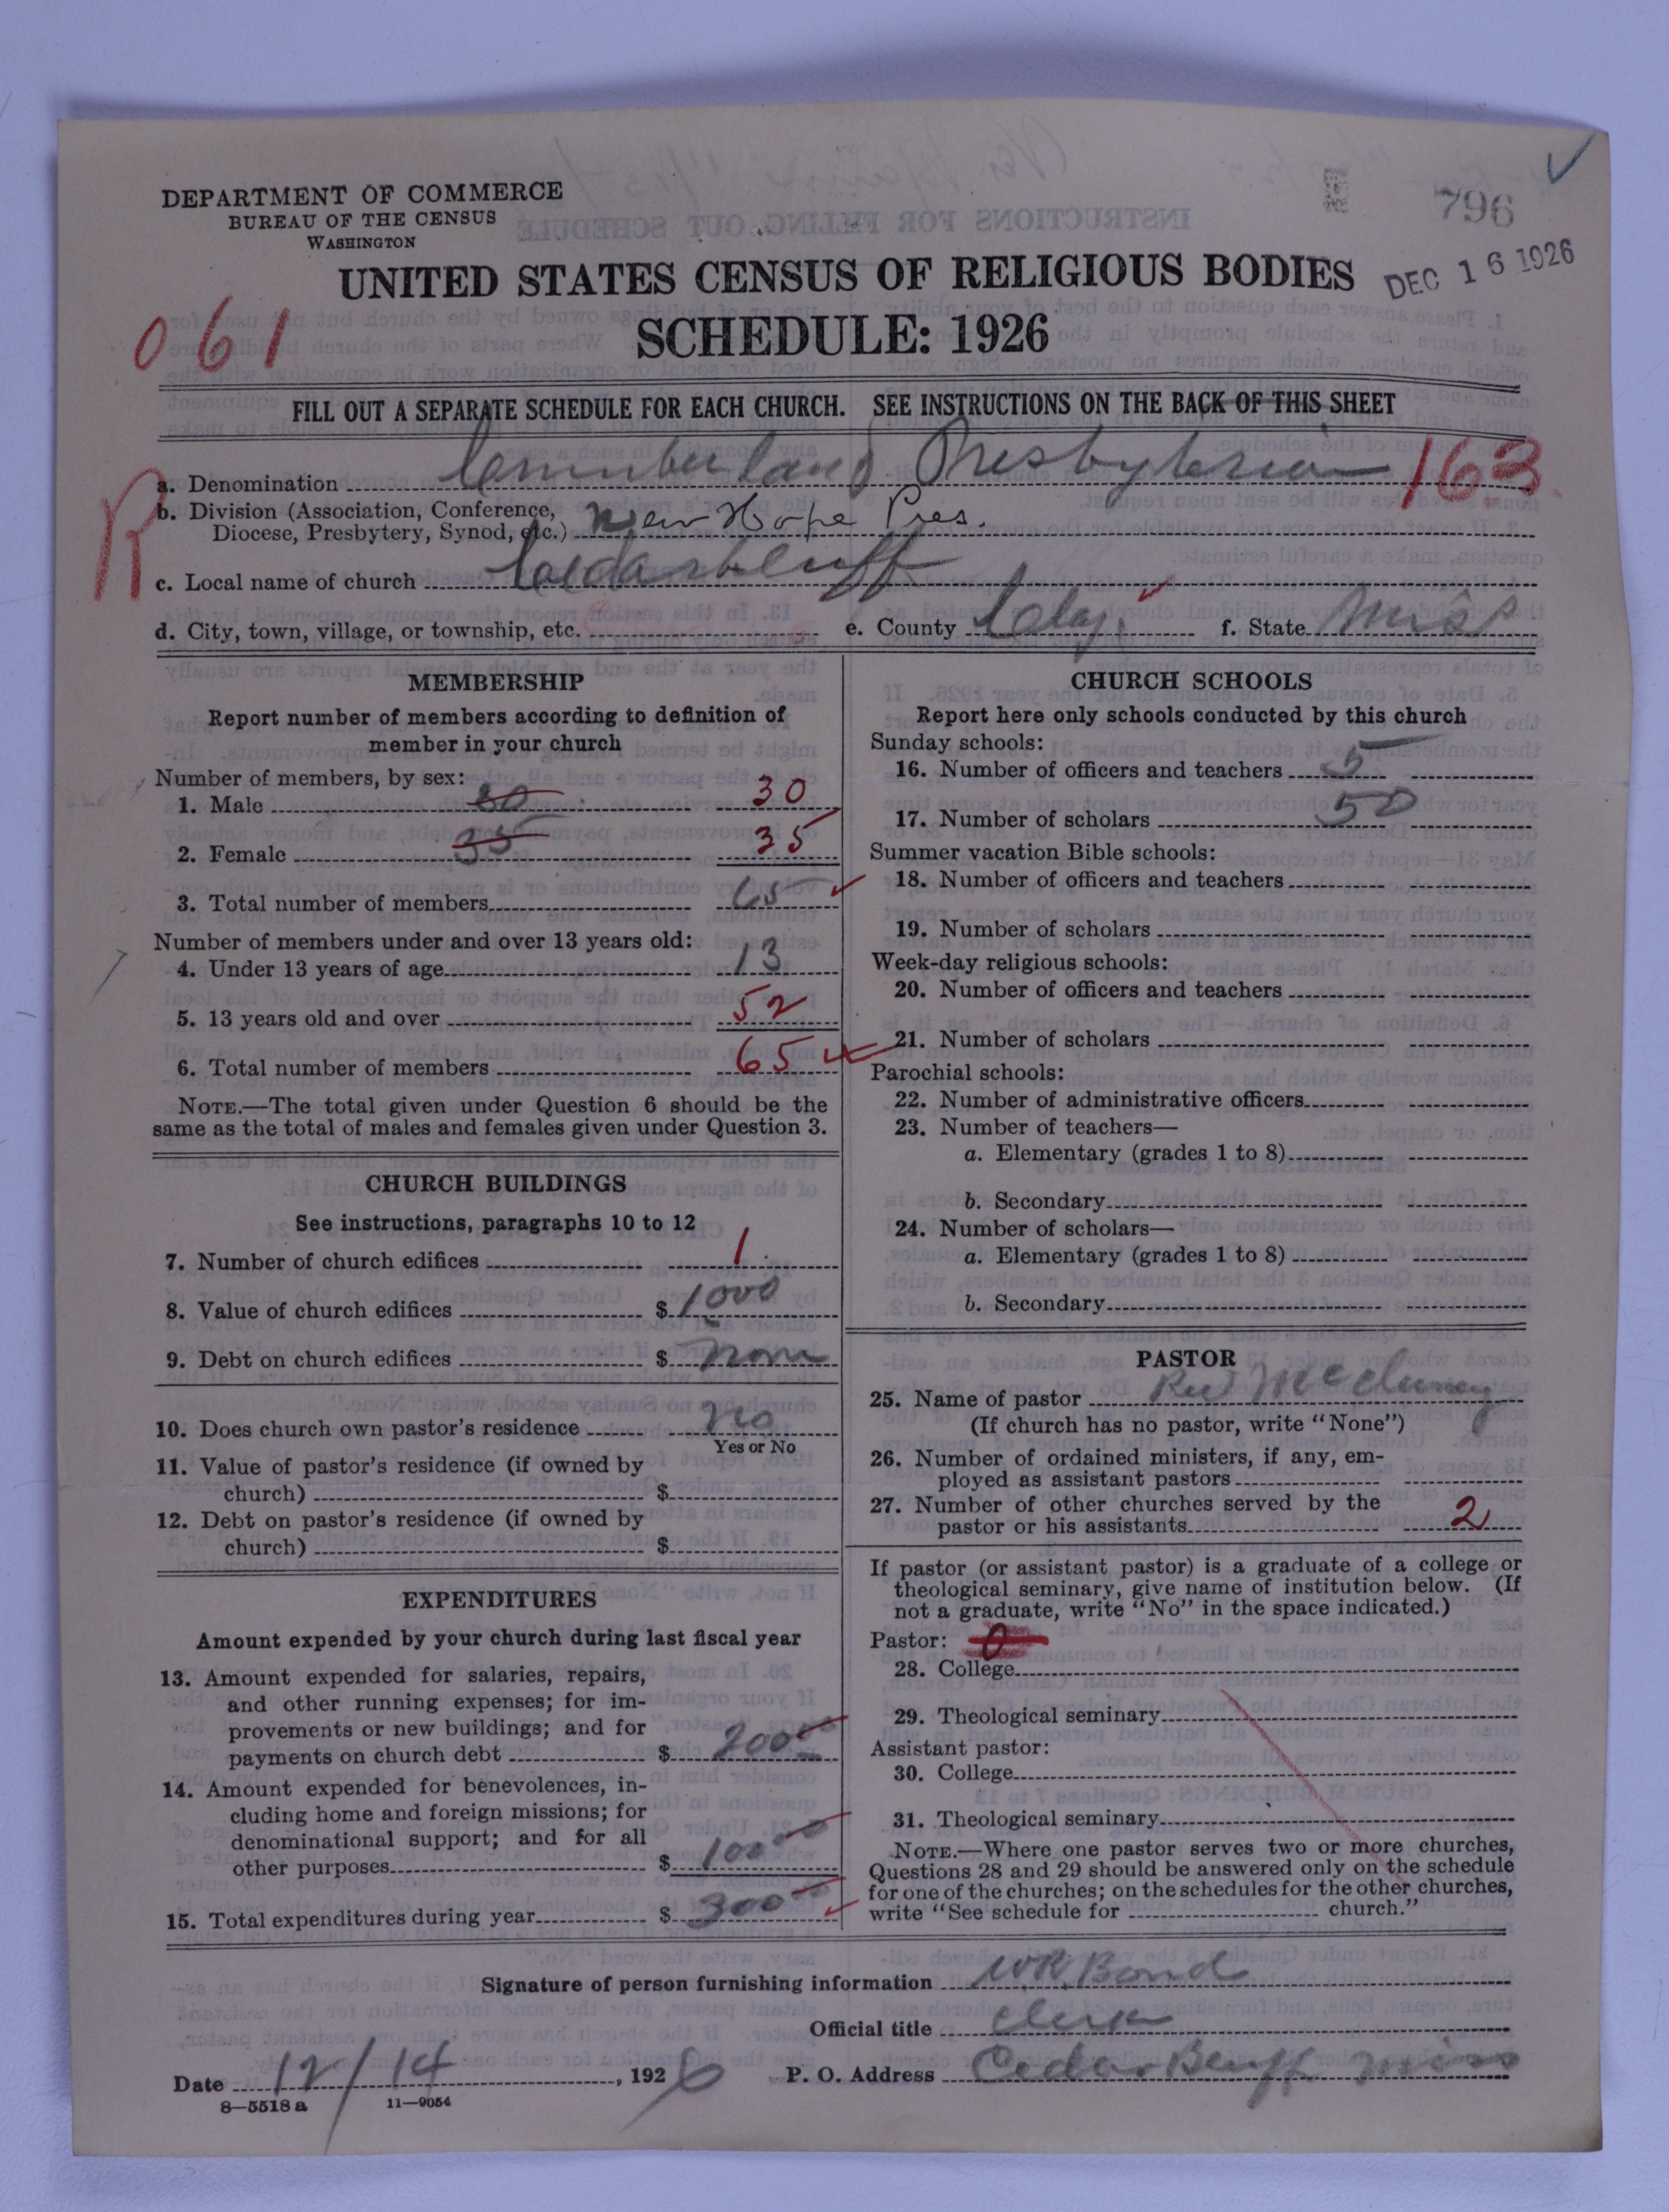 796
DEC 16 1926
DEPARTMENT OF COMMERCE
BUREAU OF THE CENSUS
WASHINGTON
UNITED STATES CENSUS OF RELIGIOUS BODIES
SCHEDULE: 1926
061
FILL OUT A SEPARATE SCHEDULE FOR EACH CHURCH. SEE INSTRUCTIONS ON THE BACK OF THIS SHEET
R
a. Denomination Cumberland Presbyterian 163
b. Division (Association, Conference, Diocese, Presbytery, Synod, etc.) New Hope Pres.
c. Local name of church Cedarbluff
d. City, town, village, or township, etc. e. County Clay f. State Miss
MEMBERSHIP
Report number of members according to definition of
member in your church
Number of members, by sex:
1. Male 30 30
2. Female 35 35
3. Total number of members 65
Number of members under and over 13 years old:
4. Under 13 years of age 13
5. 13 years old and over 52
6. Total number of members 65
NOTE.—The total given under Question 6 should be the
same as the total of males and females given under Question 3.
CHURCH BUILDINGS
See instructions, paragraphs 10 to 12
7. Number of church edifices 1
8. Value of church edifices $ 1000
9. Debt on church edifices $ none
10. Does church own pastor's residence no
Yes or No
11. Value of pastor's residence (if owned by
church) $
12. Debt on pastor's residence (if owned by
church) $
EXPENDITURES
Amount expended by your church during last fiscal year
13. Amount expended for salaries, repairs,
and other running expenses; for im-
provements or new buildings; and for
payments on church debt $ 200
14. Amount expended for benevolences, in-
cluding home and foreign missions; for
denominational support; and for all
other purposes $ 100
15. Total expenditures during year $ 300
CHURCH SCHOOLS
Report here only schools conducted by this church
Sunday schools:
16. Number of officers and teachers 5
17. Number of scholars 50
Summer vacation Bible schools:
18. Number of officers and teachers
19. Number of scholars
Week-day religious schools:
20. Number of officers and teachers
21. Number of scholars
Parochial schools:
22. Number of administrative officers
23. Number of teachers—
a. Elementary (grades 1 to 8)
b. Secondary
24. Number of scholars—
a. Elementary (grades 1 to 8)
b. Secondary
PASTOR
25. Name of pastor Rev McCluney
(If church has no pastor, write "None")
26. Number of ordained ministers, if any, em-
ployed as assistant pastors
27. Number of other churches served by the
pastor or his assistants 2
If pastor (or assistant pastor) is a graduate of a college or
theological seminary, give name of institution below. (If
not a graduate, write "No" in the space indicated.)
Pastor: 0
28. College
29. Theological seminary
Assistant pastor:
30. College
31. Theological seminary
NOTE.—Where one pastor serves two or more churches,
Questions 28 and 29 should be answered only on the schedule
for one of the churches; on the schedules for the other churches,
write "See schedule for church."
Signature of person furnishing information WR Bond
Official title Clerk
Date 12/14, 1926 P. O. Address Cedar Bluff Miss
8—5518 a 11—9054